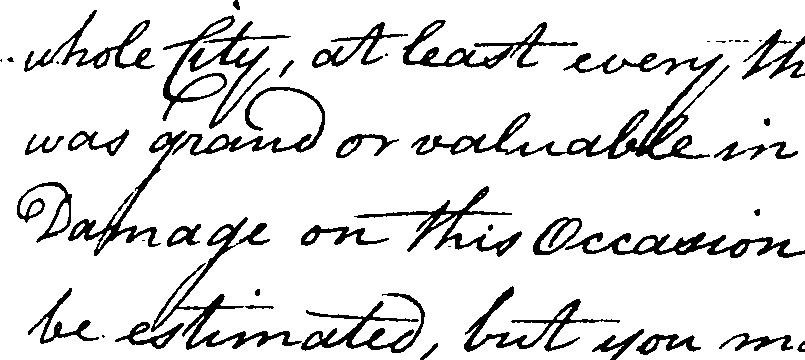 whole City, at least every th
was grand or valuable in
Damage on this Occasion
be estimated, but you ma